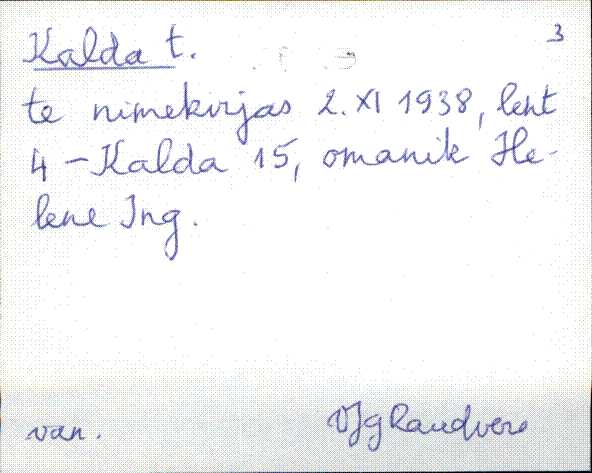 Kalda t. 3
te nimekirjas 2. XI 1938, leht
4 – Kalda 15, omanik He-
lene Ing.
van. VJg Raudvere